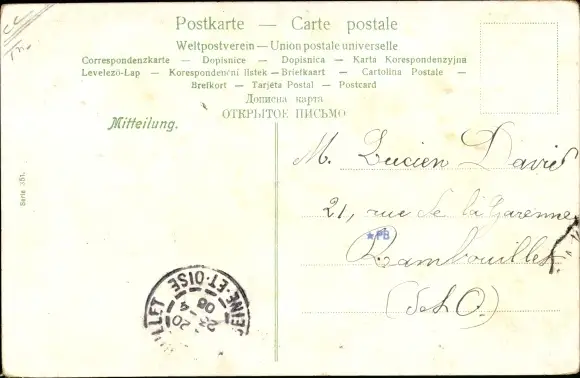 Postkarte — Carte postale
Weltpostverein — Union postale universelle
Correspondenzkarte — Dopisnice — Dopisnica — Karta Korespondenzyjna
Levelező-Lap — Korespondenčni listek — Briefkaart — Cartolina Postale —
Brefkort — Tarjeta Postal — Postcard
Дописна карта
ОТКРЫТОЕ ПИСЬМО
Mitteilung.
Serie 351.
M. Lucien David
21, rue de la Garenne
*PB
Rambouillet
(S et O.)
SEINE-ET-OISE
20
23 - 4
08